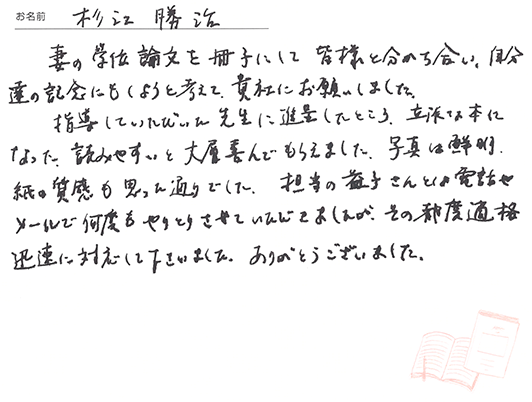 お名前 杉江 勝治
妻の学位論文を冊子にして 皆様と分かち合い、自分
達の記念にもしようと考えて、貴社にお願いしました。
指導していただいた先生に進呈したところ、立派な本に
なった、読みやすいと大層喜んでもらえました。写真は鮮明、
紙の質感も思った通りでした。 担当の益子さんとは電話や
メールで何度もやりとりさせていただきましたが、その都度適格
迅速に対応して下さいました。ありがとうございました。